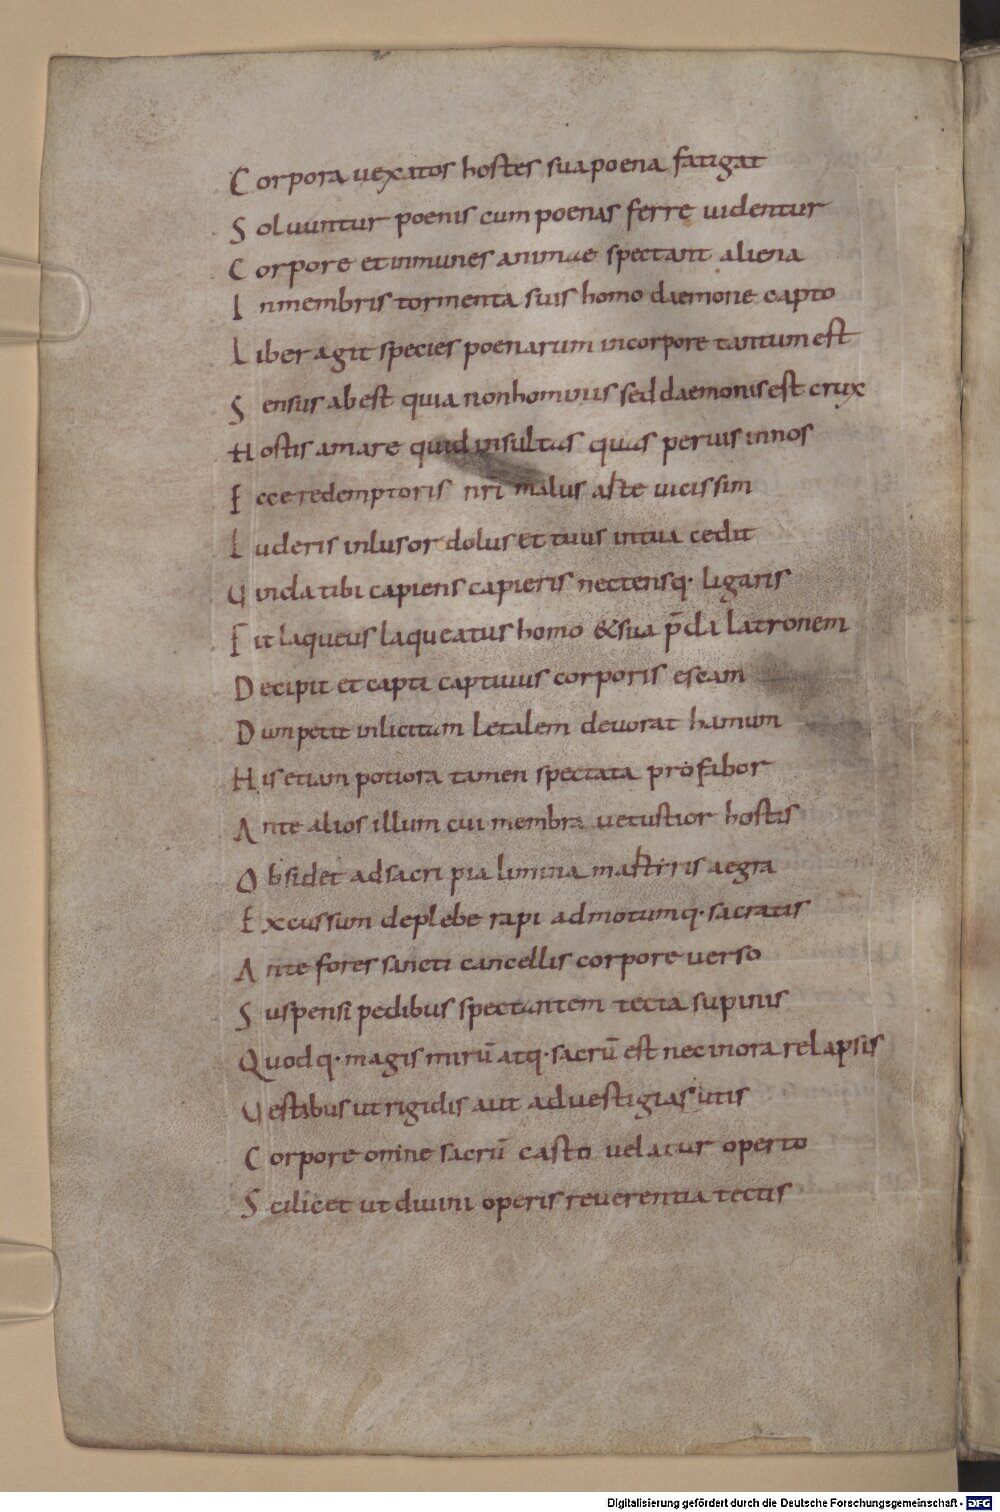 Corpora uexatos hostes sua poena fatigat
Soluuntur poenis cum poenas ferre uidentur
Corpore et inmunes animae spectant aliena
Inmembris tormenta suis homo daemone capto
Liber agit species poenarum incorpore tantum est
Sensus abest quia nonhominis sed daemonis est crux
Hostis amare quid insultas quas peruis innos
Ecce redemptoris nri malus aste uicissim
Luderis inlusor dolus et tuus intua cedit
Uincla tibi capiens capieris nectensq· ligaris
Fit laqueus laqueatus homo &sua p̄da latronem
Decipit et capti captiuus corporis escam
Dum petit inlicitum letalem deuorat hamum
His etiam potiora tamen spectata profabor
Ante alios illum cui membra uetustior hostis
Obsidet adsacri pia limina martiris aegra
Excussum deplebe rapi admotumq· sacratis
Ante fores sancti cancellis corpore uerso
Suspensi pedibus spectantem tecta supinis
Quodq· magis mirū atq· sacrū est nec inora relapsis
Uestibus ut rigidis aut aduestigia sutis
Corpore omine sacrū casto uelatur operto
Scilicet ut diuini operis reuerentia tectis
Digitalisierung gefördert durch die Deutsche Forschungsgemeinschaft - DFG